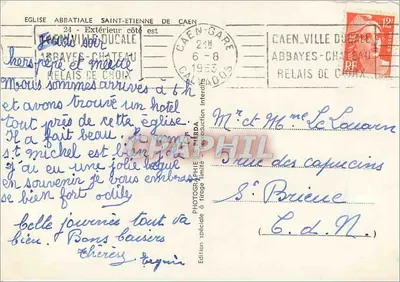 EGLISE ABBATIALE SAINT-ETIENNE DE CAEN
24 - Extérieur côté est
CAEN, VILLE DUCALE
ABBAYES-CHATEAU
RELAIS DE CHOIX
CAEN-GARE
6-8
CALVADOS
CAEN, VILLE DUCALE
ABBAYES-CHATEAU
RELAIS DE CHOIX
12F
RF
Jeudi soir
chers père et mémée
Nous sommes arrivés à 6 h
et avons trouvé un hotel
tout près de cette église.
Il a fait beau. Le
st michel est bien
J'ai eu une jolie bague
en souvenir je vous embrasse
bien fort odile
Belle journée tout va
bien. Bons baisers
Thérèse
PHOTOGRAPHIE VÉRITABLE
Edition spéciale à tirage limité
Reproduction interdite
CPAPHIL
Mr et Mme Le Louarn
rue des capucins
St Brieuc
C.d.N.